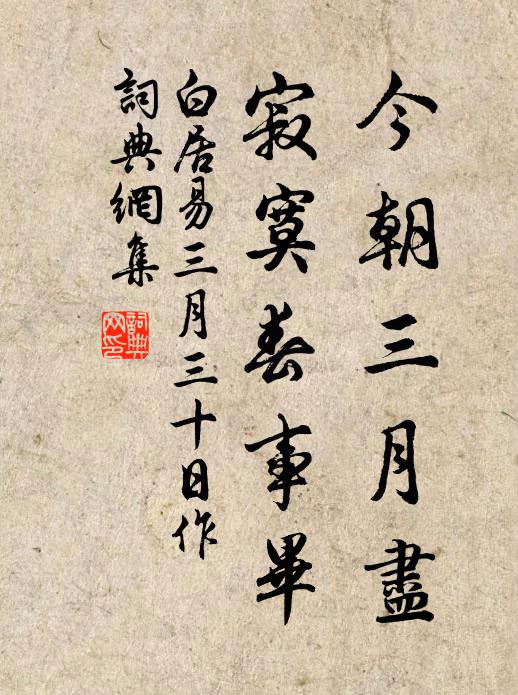 今朝三月盡
寂寞春事畢
白居易三月三十日作
詞典網集
詞典网印